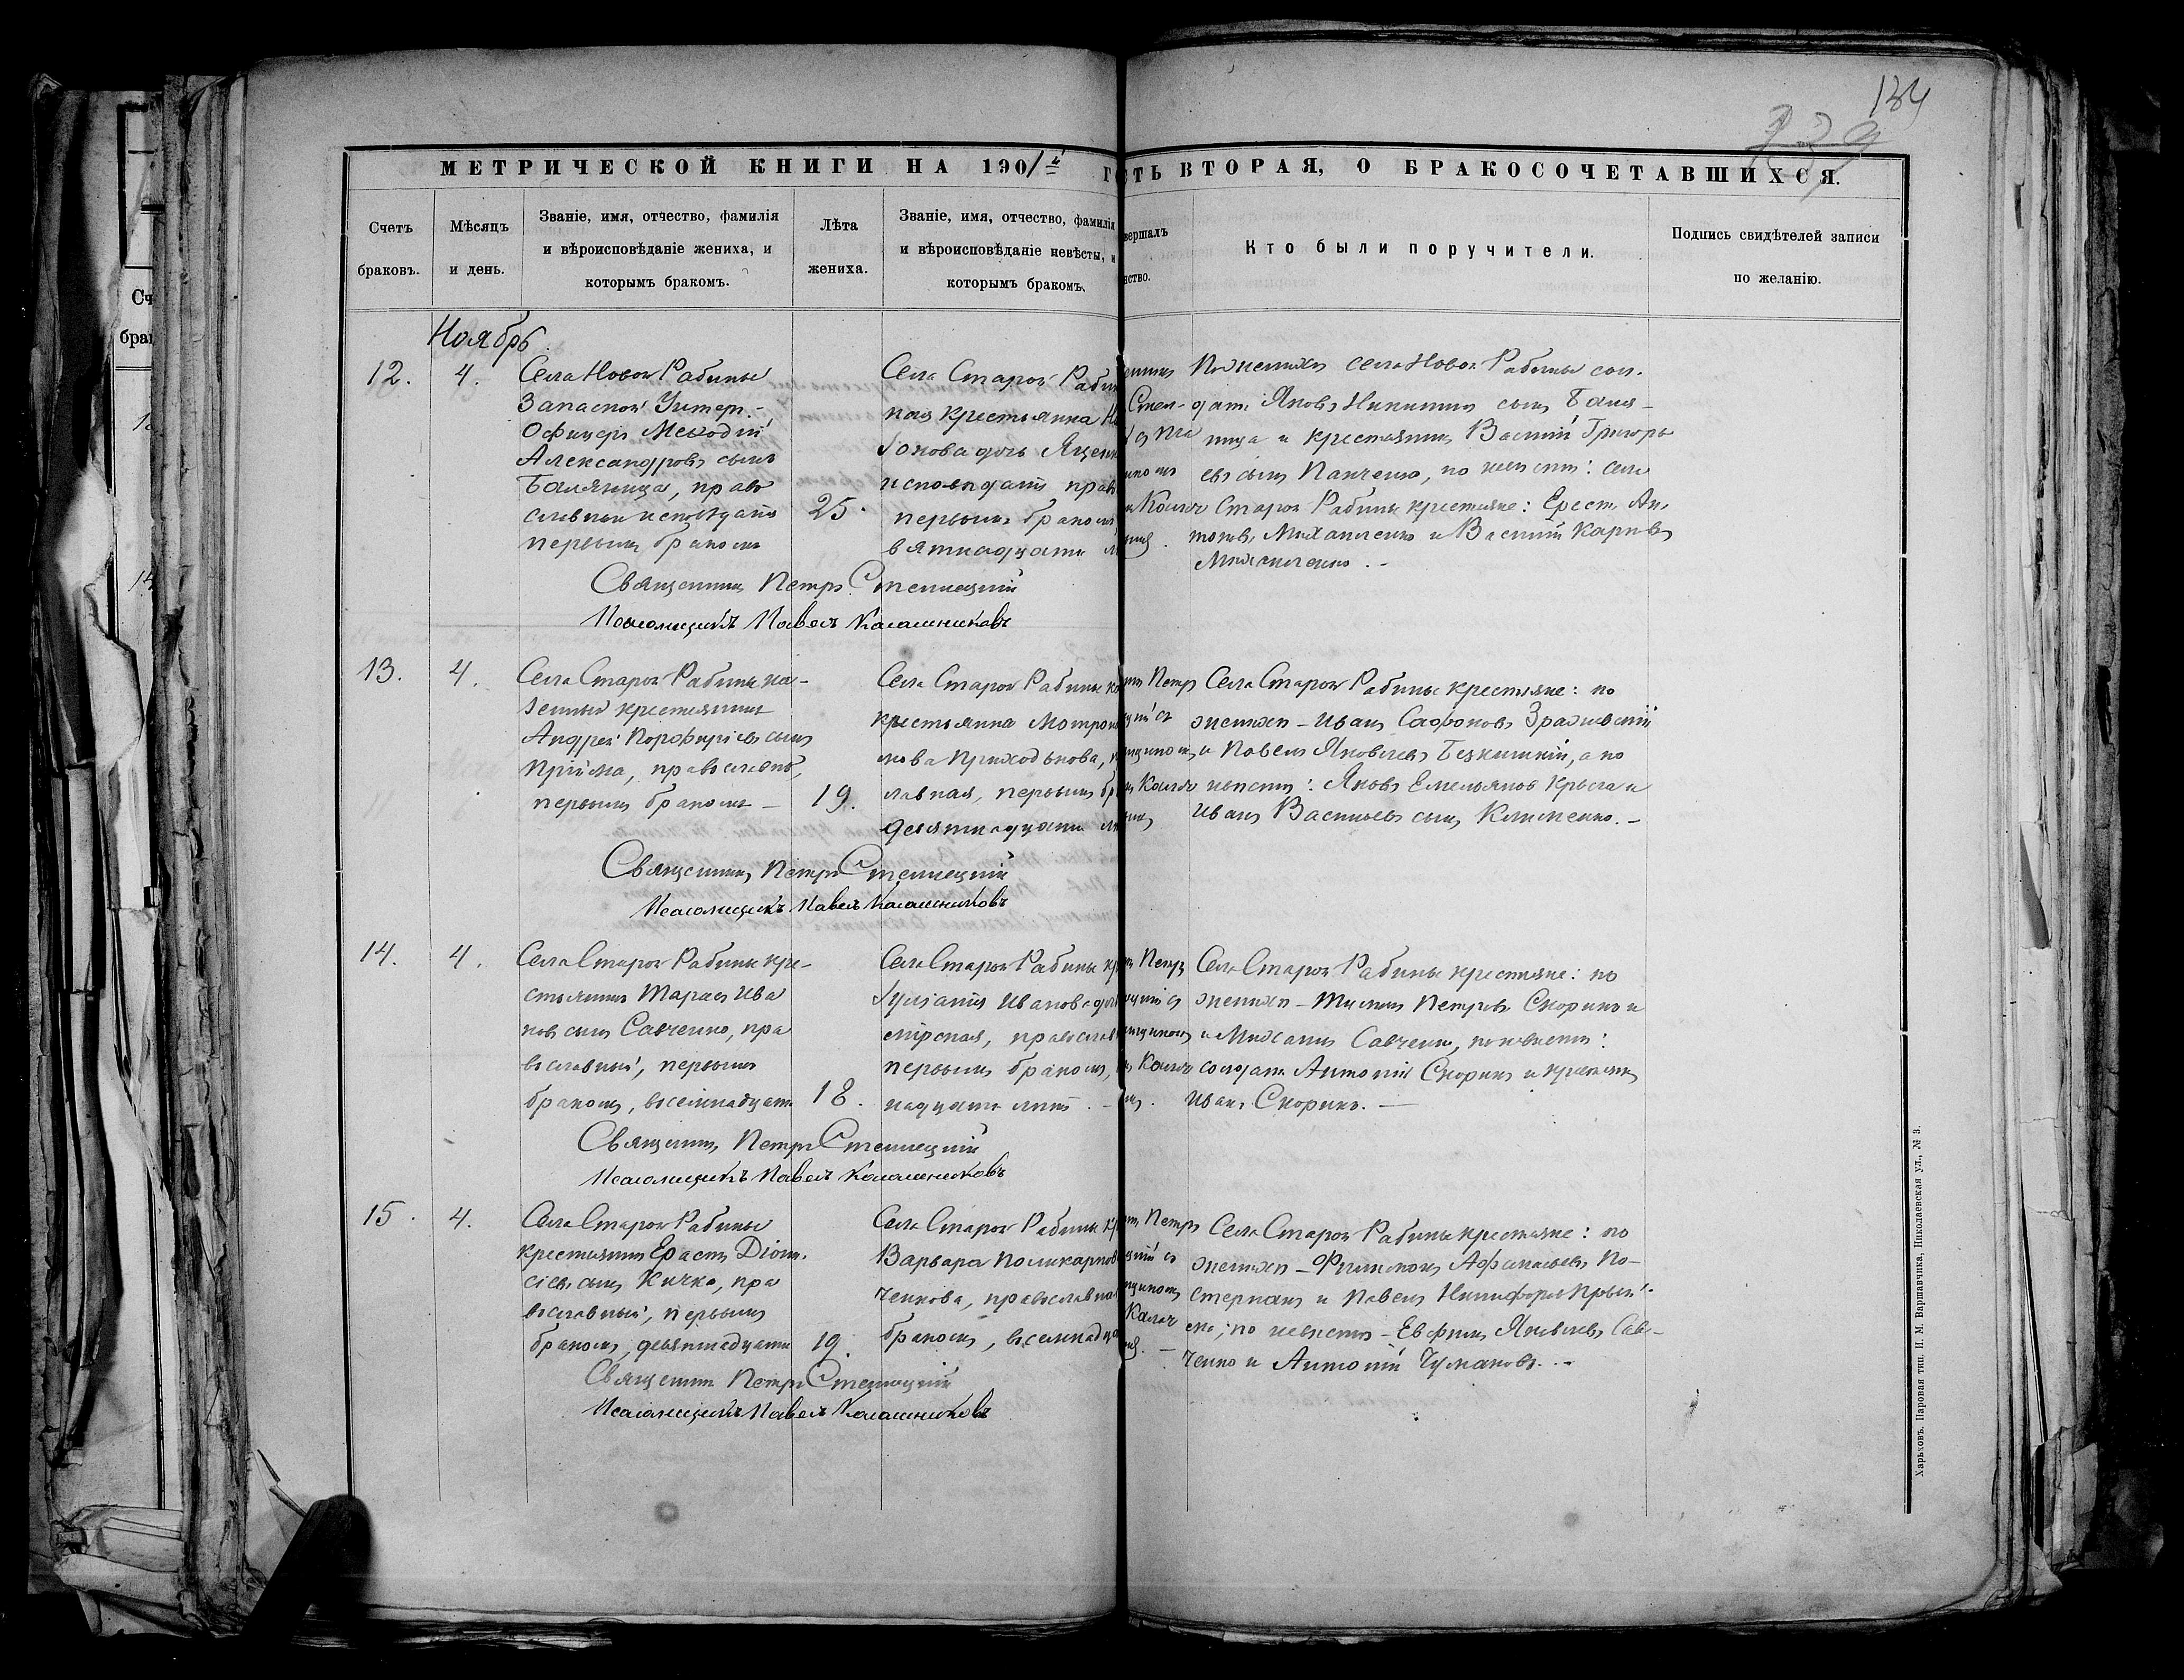 134
МЕТРИЧЕСКОЙ КНИГИ НА 1901й Г
СТЬ ВТОРАЯ, О БРАКОСОЧЕТАВШИХСЯ.
Счетъ браковъ.
Мѣсяцъ и день.
Званіе, имя, отчество, фамилія
и вѣроисповѣданіе жениха, и
которымъ бракомъ.
Лѣта жениха.
Званіе, имя, отчество, фамилія
и вѣроисповѣданіе невѣсты, и
которымъ бракомъ.
вершалъ
нство.
Кто были поручители.
Подпись свидѣтелей записи
по желанію.
Ноябрь.
12. 4.
Села Новой Рабины
Запасной Унтеръ-
Офицеръ Меѳодій
Александровъ сынъ
Баляница, право
славнаго исповѣдать
первымъ бракомъ
25.
Села Старой Рабин
ная крестьянка
нова дочь Яцен
исповѣданія прав
первымъ бракомъ
вятнадцати
По женихѣ села Новой Рабины сол.
датъ Яковъ Никитинъ сынъ Баля-
ница и крестьянинъ Василій Григорь
евъ сынъ Панченко, по невѣстѣ: села
Старой Рабины крестьяне: Ерестъ Ан
тоновъ Михаиленко и Василій Карповъ
Михаиленко. -
Священникъ Петръ Стеллецкій
Псаломщикъ Павелъ Калашниковъ
13. 4.
Села Старой Рабины ка-
зенный крестьянинъ
Андрей Порфиріевъ сынъ
Прійма, православн,
первымъ бракомъ -
19.
Села Старой Рабины ка
крестьянка Матрон
лова Приходькова,
лавная, первымъ бр
девятнадцати
Села Старой Рабины крестьяне: по
женихѣ - Иванъ Сафоновъ Зражевскій
и Павелъ Яковлевъ Безкишкій, а по
невѣстѣ: Яковъ Емельяновъ Крыса и
Иванъ Васильевъ сынъ Клименко. -
Священникъ Петръ Стеллецкій
Псаломщикъ Павелъ Калашниковъ
14. 4.
Села Старой Рабины кре-
стьянинъ Тарасъ Ива
новъ сынъ Савченко, пра
вославный, первымъ
бракомъ, восемнадцати
18.
Села Старой Рабины кр
Іуліанія Иванова доч
мірская, православ
первымъ бракомъ,
надцати лѣтъ. -
Села Старой Рабины крестьяне: по
женихѣ - Петровъ Скорикъ и
и Михаилъ Савченко, по невѣстѣ:
солдатъ Антоній Скорикъ и крестьян
Иванъ Скорикъ. -
Священникъ Петръ Стеллецкій
Псаломщикъ Павелъ Калашниковъ
15. 4.
Села Старой Рабины
крестьянинъ Ерастъ Діони-
сіевъ сынъ Кичко, пра
вославный, первымъ
бракомъ, девятнадцати
19.
Села Старой Рабины кр
Варвара Поликарпов
ченкова, православна
бракомъ, восемнадца
Села Старой Рабины крестьяне: по
женихѣ - Филимонъ Афанасьевъ По-
стернакъ и Павелъ Никифоръ Прый-
ма; по невѣстѣ - Евфимъ Яковлевъ Сав-
ченко и Антоній Чумаковъ. -
Священникъ Петръ Стеллецкій
Псаломщикъ Павелъ Калашниковъ
Харьковъ. Паровая тип. И. М. Варшавчика, Николаевская ул., № 3.